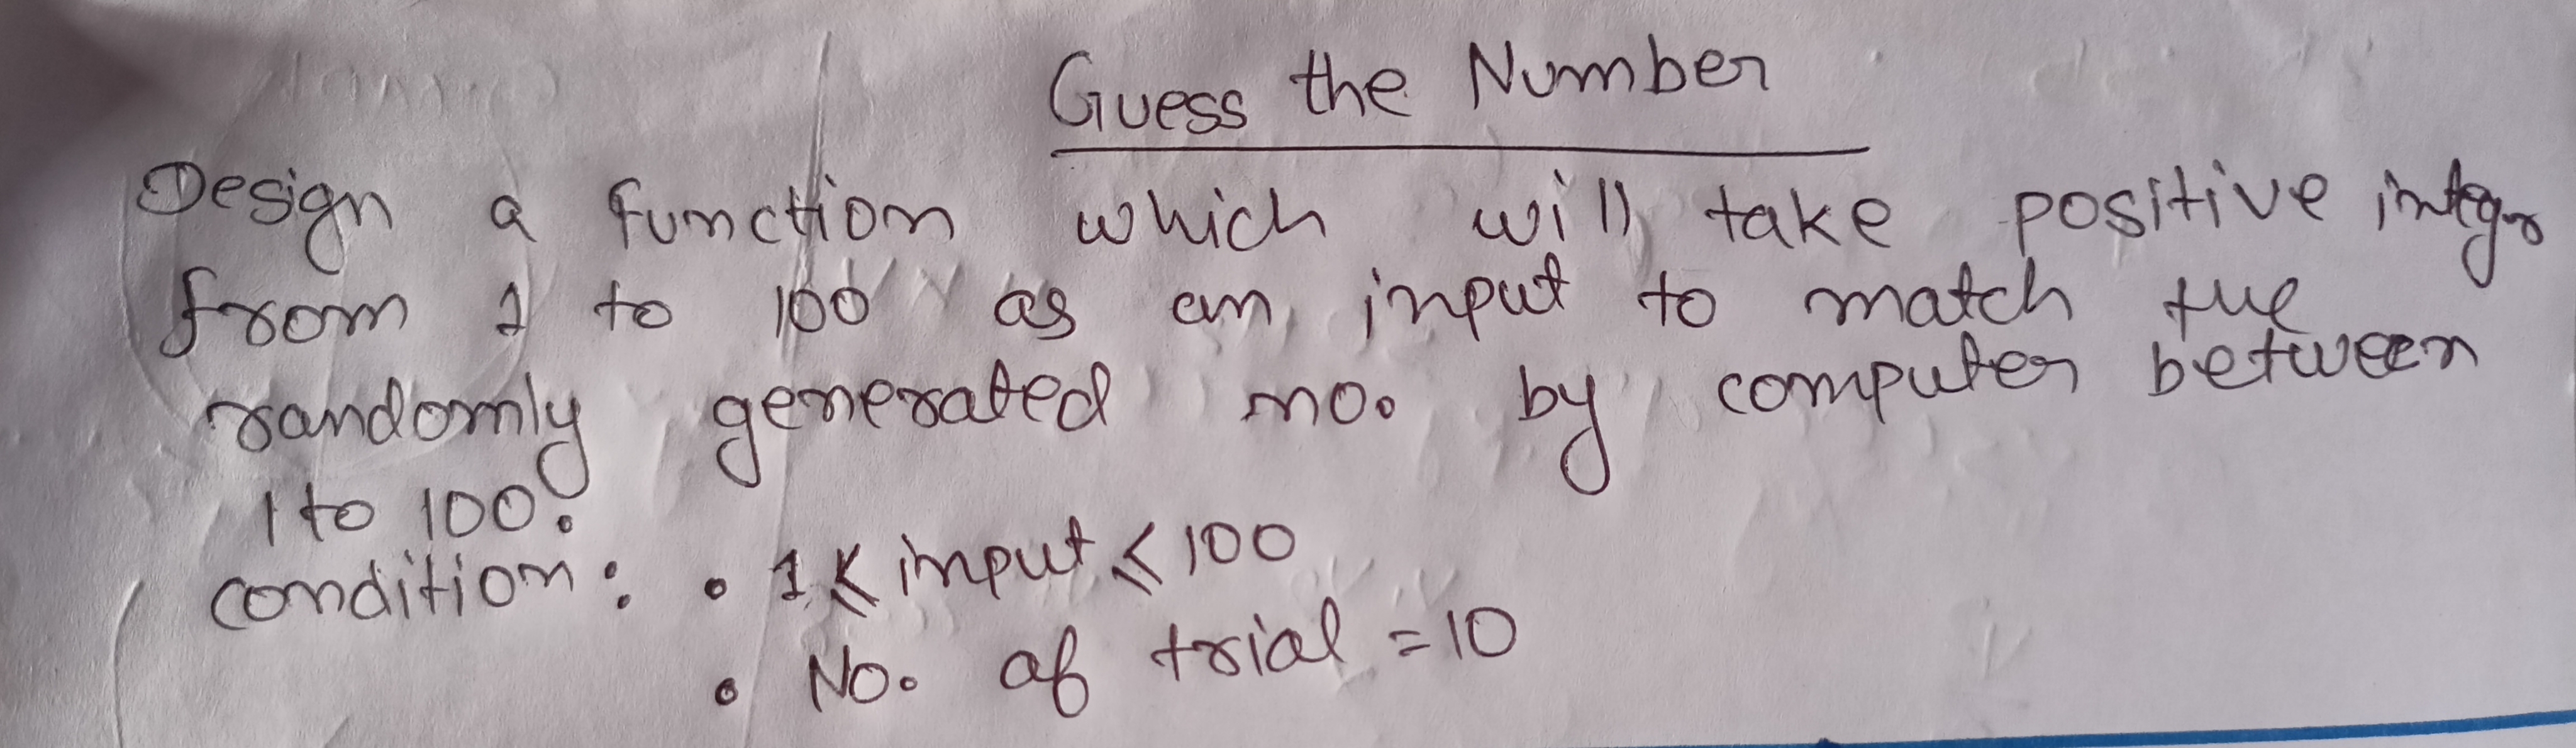 Guess the Number
Design a function which will take positive integr
from 1 to 100 as an input to match the
randomly generated no. by computer between
1 to 100.
condition: • 1 ≤ input ≤ 100
• No. of trial = 10